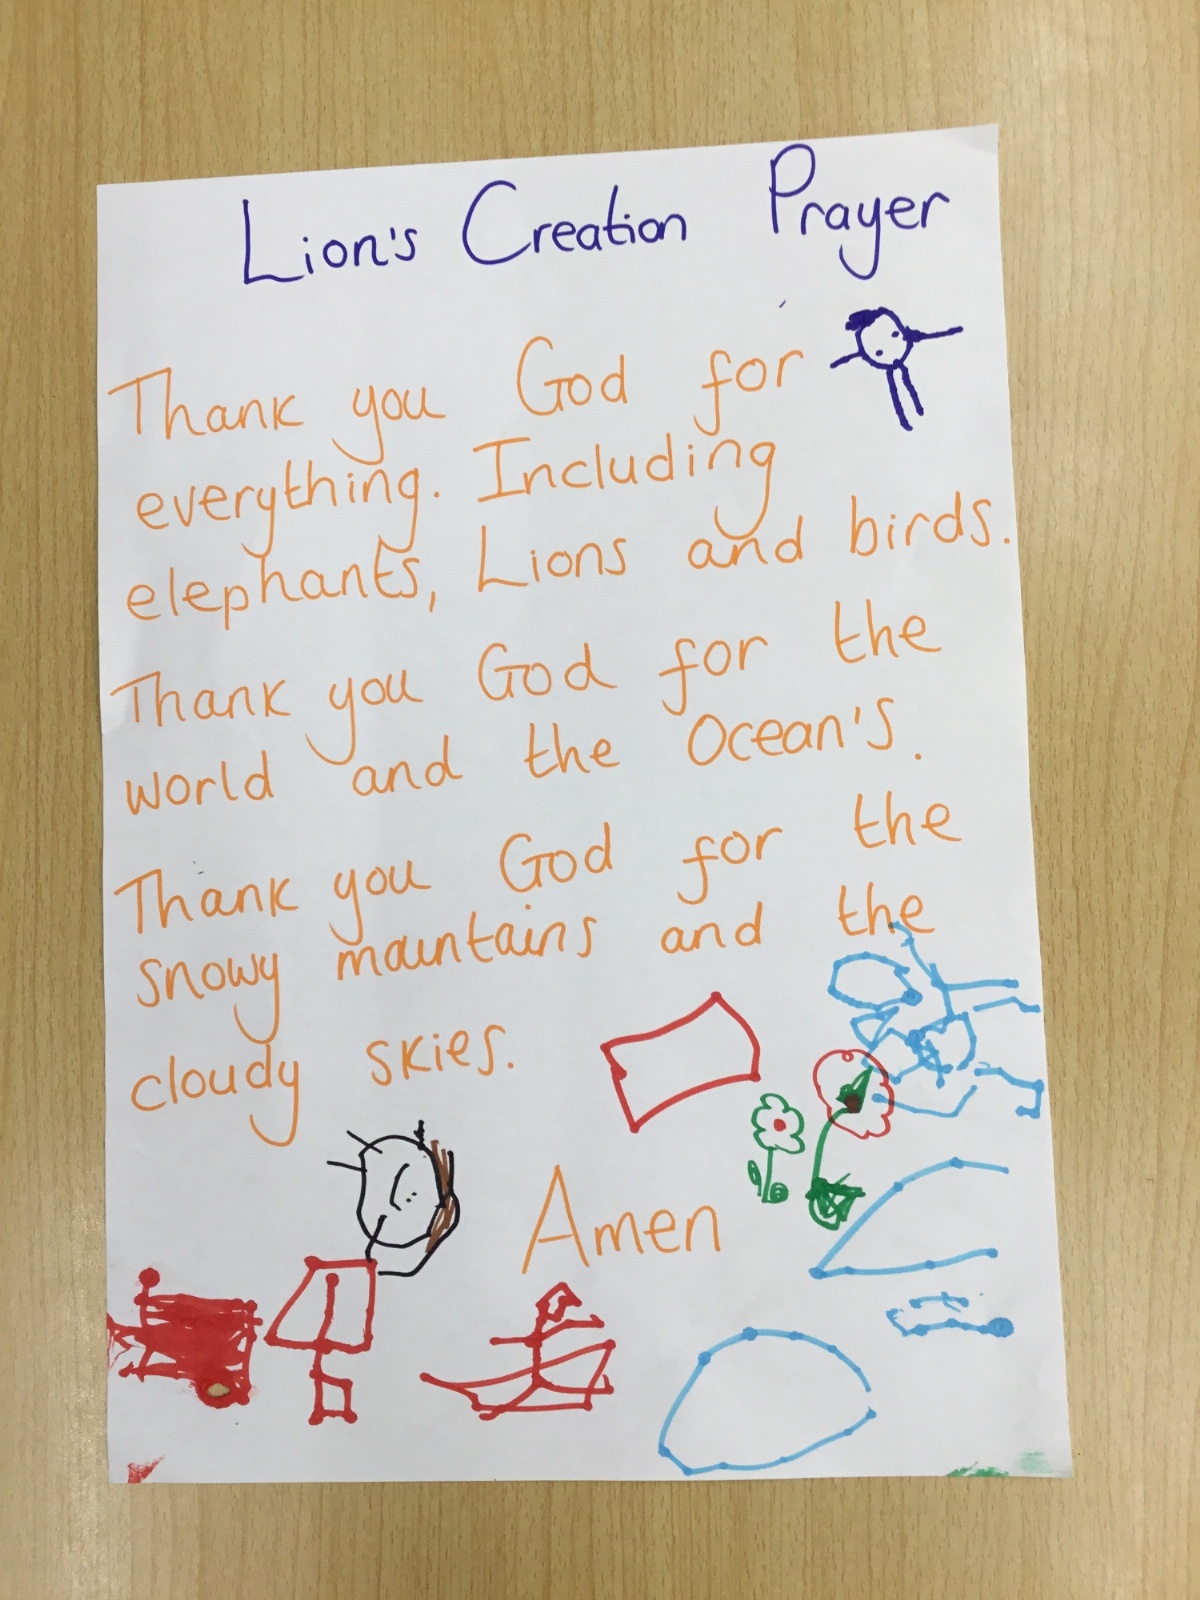 Lion's Creation Prayer
Thank you God for
everything. Including
elephants, Lions and birds.
Thank you God for the
world and the Ocean's.
Thank you God for the
snowy mountains and the
cloudy skies.
Amen